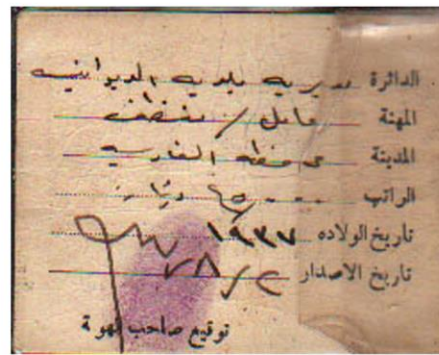 الدائرة مديرية بلدية الديوانية
المهنة عامل / منظف
المدينة محافظة القادسية
الراتب دينار
تاريخ الولاده ١٩٣٧
تاريخ الاصدار ٢ / ٨ /
توقيع صاحب الهوية